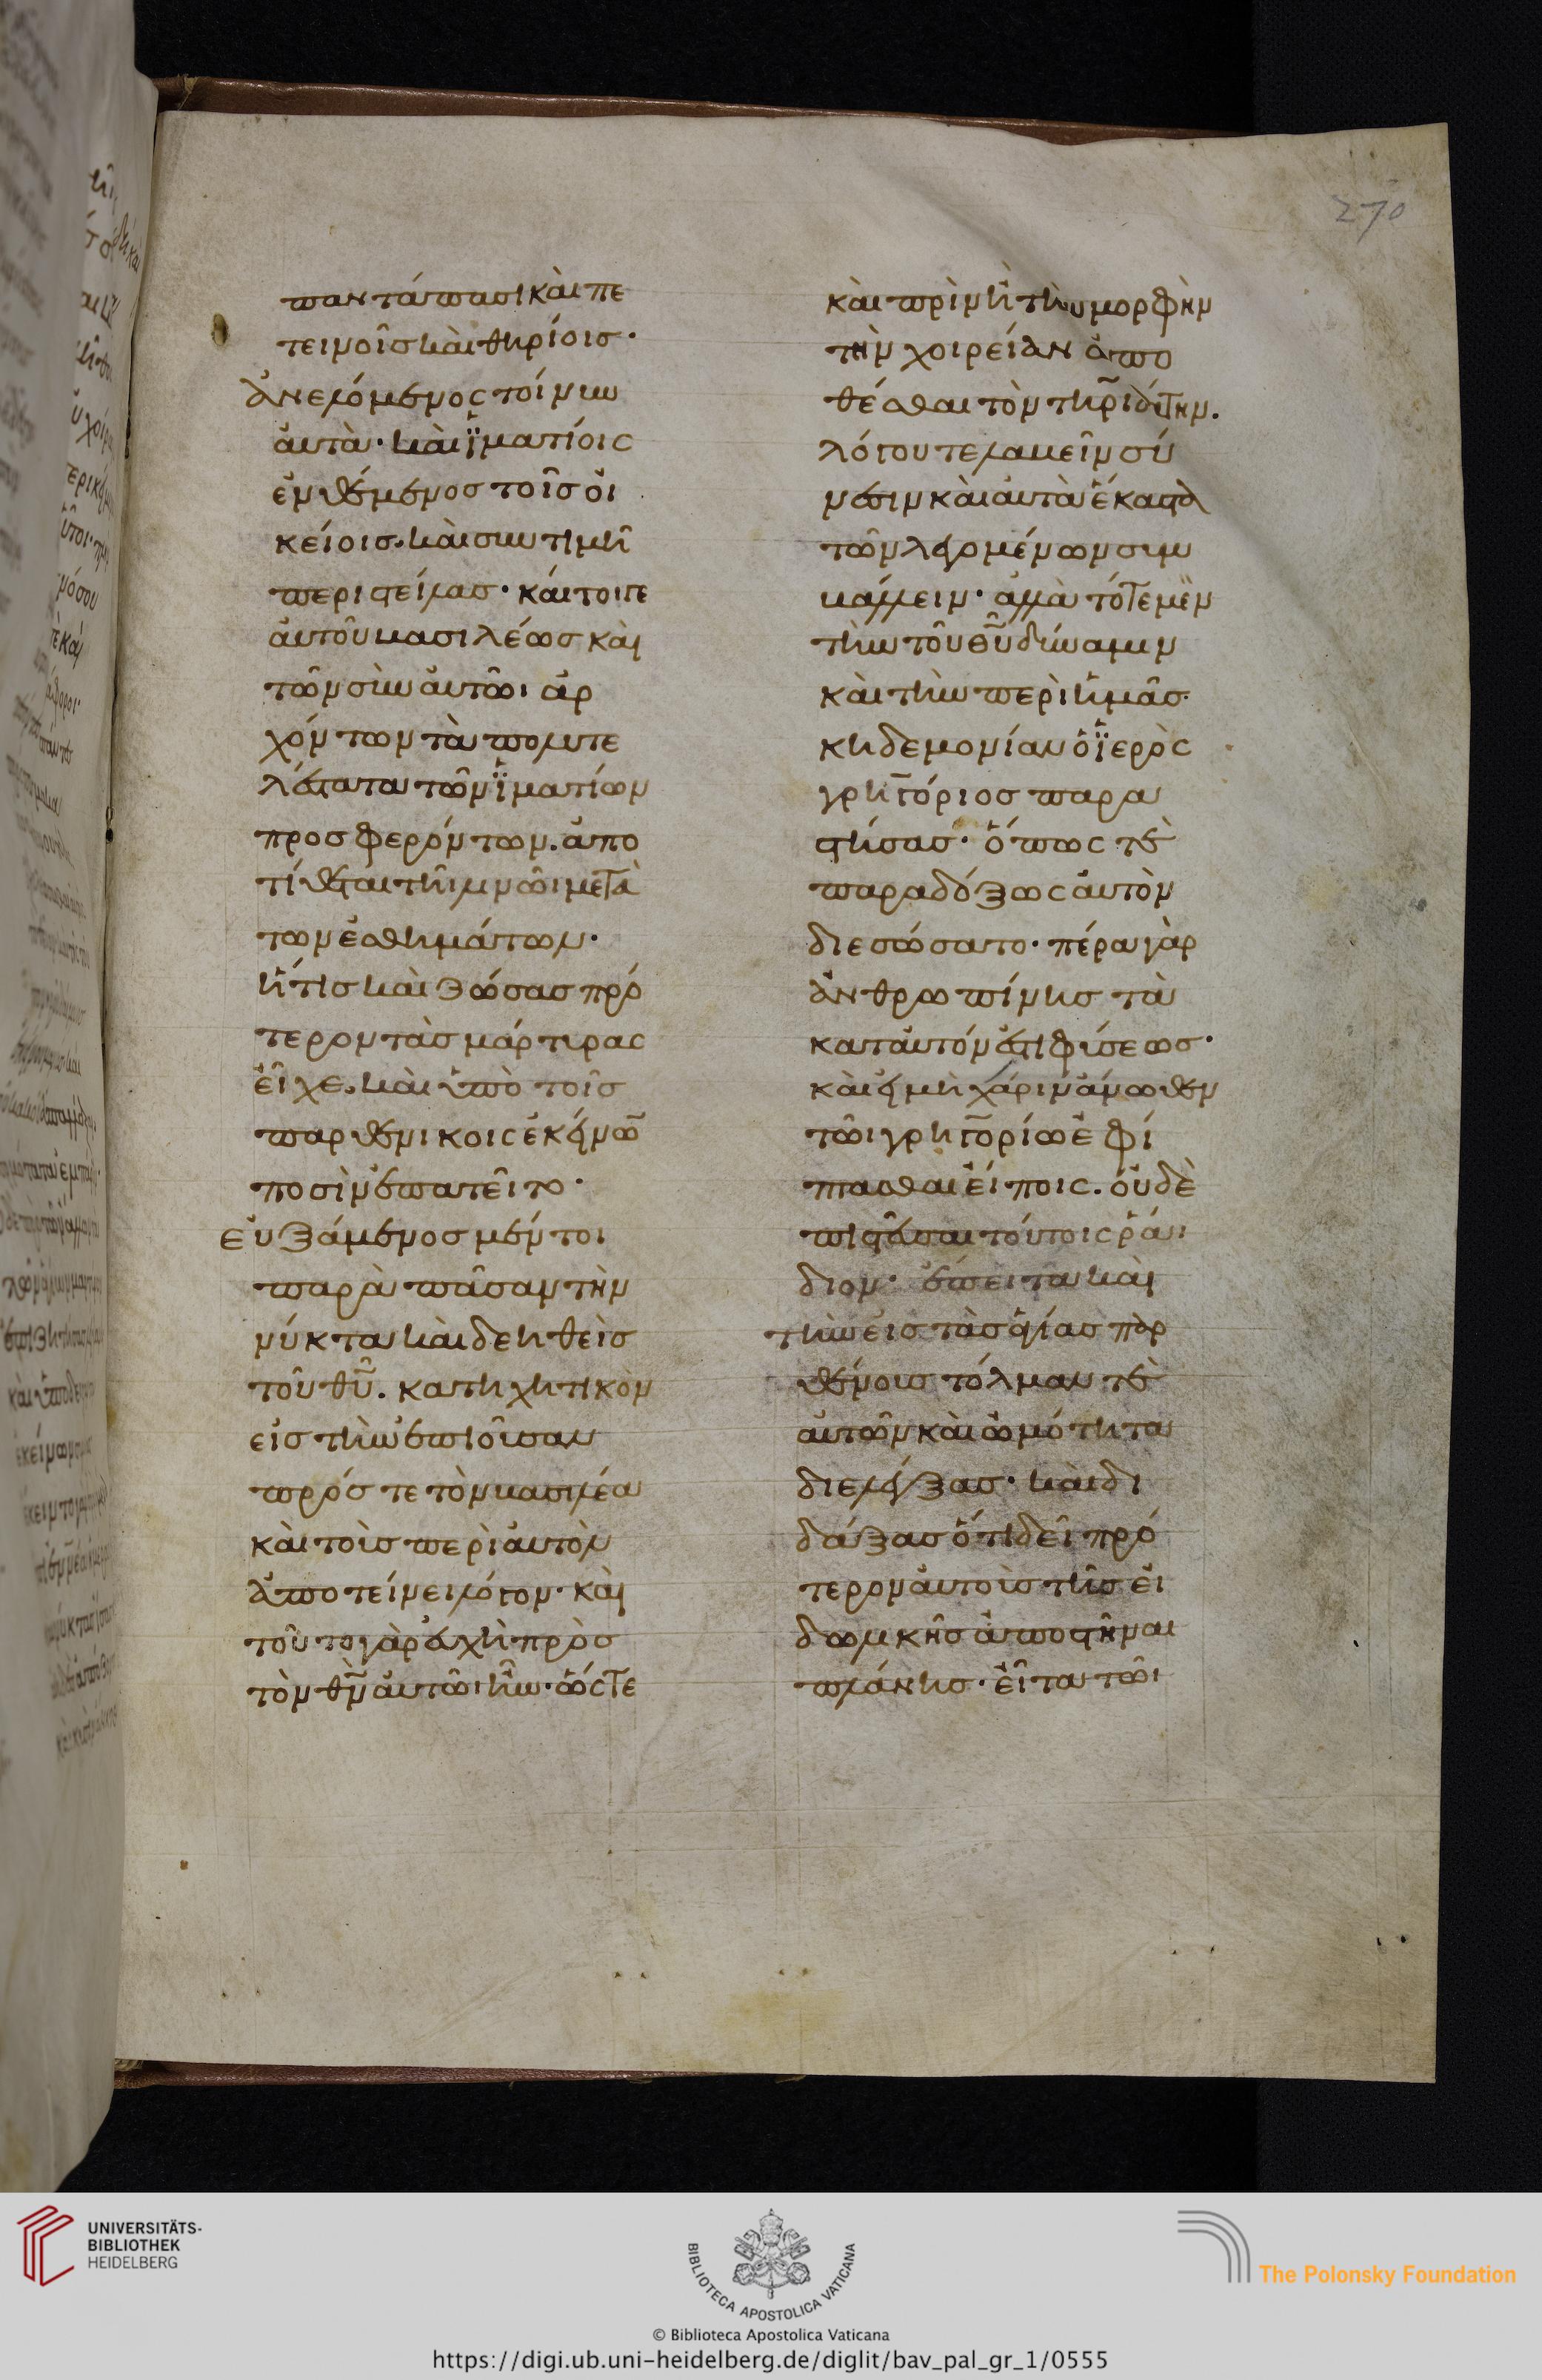 270
παντάπασι καὶ πε
τεινοῖς καὶ θηρίοις·
ἀνελόμενος τοίνυν
αὐτὰ· καὶ ἱματίοις
ἐνθέμενος τοῖς οἰ
κείοις. καὶ σὺν τιμῆ
περιστείλας· καίτοιγε
αὐτοῦ βασιλέως καὶ
τῶν σὺν αὐτῶι ἀρ
χόντων τὰ πολυτε
λέστατα τῶν ἱματίων
προσφερόντων. ἀπο
τίθεται τῆι ληνῶι μετὰ
των ἐσθημάτων·
ἥτις καὶ ζώσας πρό
τερον τὰς μάρτυρας
εἶχε. καὶ ὑπὸ τοῖς
παρθενικοις ἐκείνω̄
ποσὶν ἐπατεῖτο·
εὐξάμενος μέντοι
παρὰ πᾶσαν τὴν
νύκτα καὶ δεηθεὶς
τοῦ θῦ. κατηχητικὸν
εἰς τὴν ἐπιοῦσαν
πρός τε τὸν βασιλέα
καὶ τοὺς περὶ αὐτὸν
ἀποτείνει λόγον· καὶ
τοῦτο γὰρ εὐχὴ πρὸς
τὸν θν̄ αὐτῶι ἦν· ὥστε
καὶ πρὶν ἢ τὴν μορφὴν
τὴν χοιρείαν ἀπο
θέσθαι τὸν τηριδάτην.
λόγου τε λαβεῖν σύ
νεσιν καὶ αὐτὰ ἕκαστα
τῶν λεγομένων συμ
βάλλειν· ἀλλὰ τότε μὲν
τὴν τοῦ θῦ δύναμιν
καὶ τὴν περὶ ἡμᾶς
κηδεμονίαν ὁ ἱερὸς
γρηγόριος παρα
στήσας· ὅπως τὲ
παραδόξως αὐτὸν
διεσώσατο· πέρα γὰρ
ἀνθρωπίνης τὰ
κατ αὐτόν ἐστι φύσεως·
καὶ εἰ μὴ χάριν ἄνωθεν
τῶι γρηγορίω ἐφί
πτασθαι εἴποις. οὐδὲ
πιστεῦσαι τούτοις ῥάι
διον· ἔπειτα καὶ
τὴν εἰς τὰς ἁγίας παρ
θένους τόλμαν τὲ
αὐτῶν καὶ ὠμότητα
διελέγξας· καὶ δι
δάξας ὅτι δεῖ πρό
τερον αὐτοὺς τῆς εἰ
δωλικῆς ἀποστῆναι
πλάνης· εἶτα τῶι
UNIVERSITÄTS-
BIBLIOTHEK
HEIDELBERG
BIBLIOTECA APOSTOLICA VATICANA
The Polonsky Foundation
© Biblioteca Apostolica Vaticana
https://digi.ub.uni-heidelberg.de/diglit/bav_pal_gr_1/0555